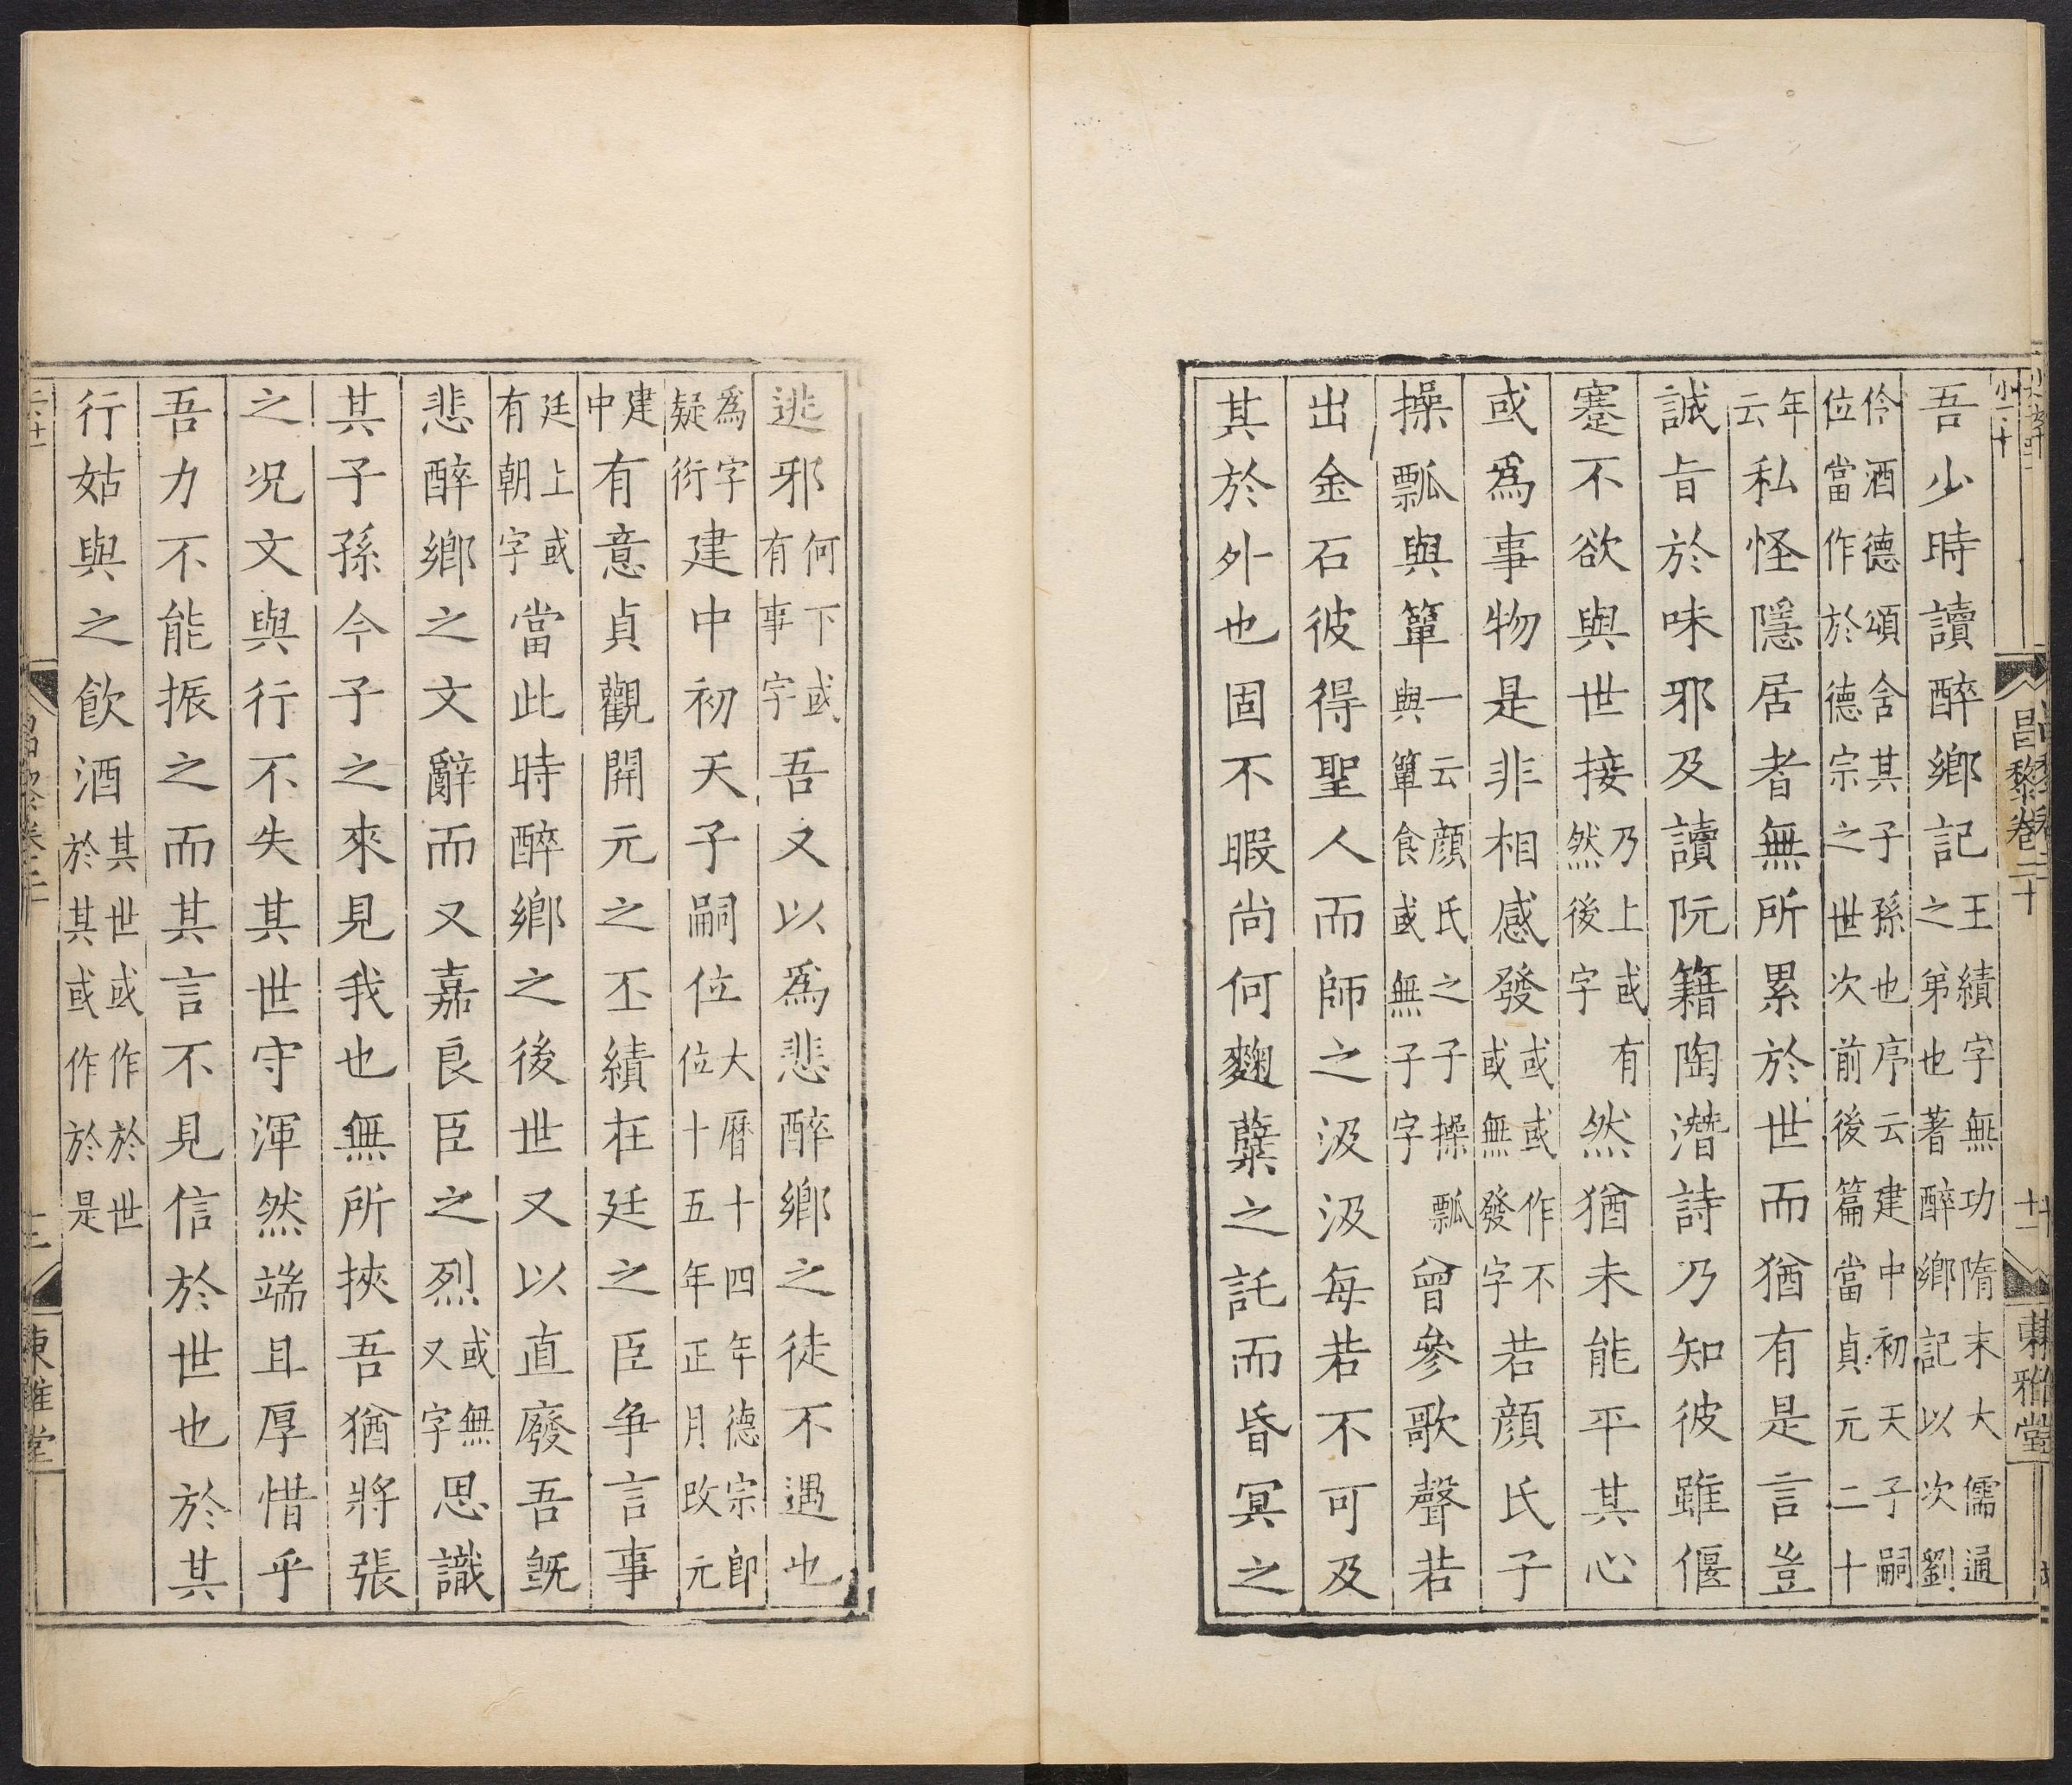 吾少時讀醉鄉記王績字無功隋末大儒通之弟也著醉鄉記以次劉
伶酒德頌舍其子孫也序云建中初天子嗣位當作於德宗之世次前後篇當貞元二十
年云私怪隱居者無所累於世而猶有是言豈
誠旨於味邪及讀阮籍陶潛詩乃知彼雖偃
蹇不欲與世接乃上或有然後字然猶未能平其心
或爲事物是非相感發或或作不或無發字若顔氏子
操瓢與簞一云顔氏之子操瓢與簞食或無子字曾參歌聲若
出金石彼得聖人而師之汲汲每若不可及
其於外也固不暇尚何麴櫱之託而昏冥之
昌黎卷二十
十一
東雅堂
逃邪何下或有事字吾又以爲悲醉鄉之徒不遇也
爲字疑衍建中初天子嗣位大曆十四年德宗即位十五年正月改元
建中有意貞觀開元之丕績在廷之臣争言事
廷上或有朝字當此時醉鄉之後世又以直廢吾旣
悲醉鄉之文辭而又嘉良臣之烈或無又字思識
其子孫今子之來見我也無所挾吾猶將張
之况文與行不失其世守渾然端且厚惜乎
吾力不能振之而其言不見信於世也於其
行姑與之飲酒其世或作於世於其或作於是
東雅堂